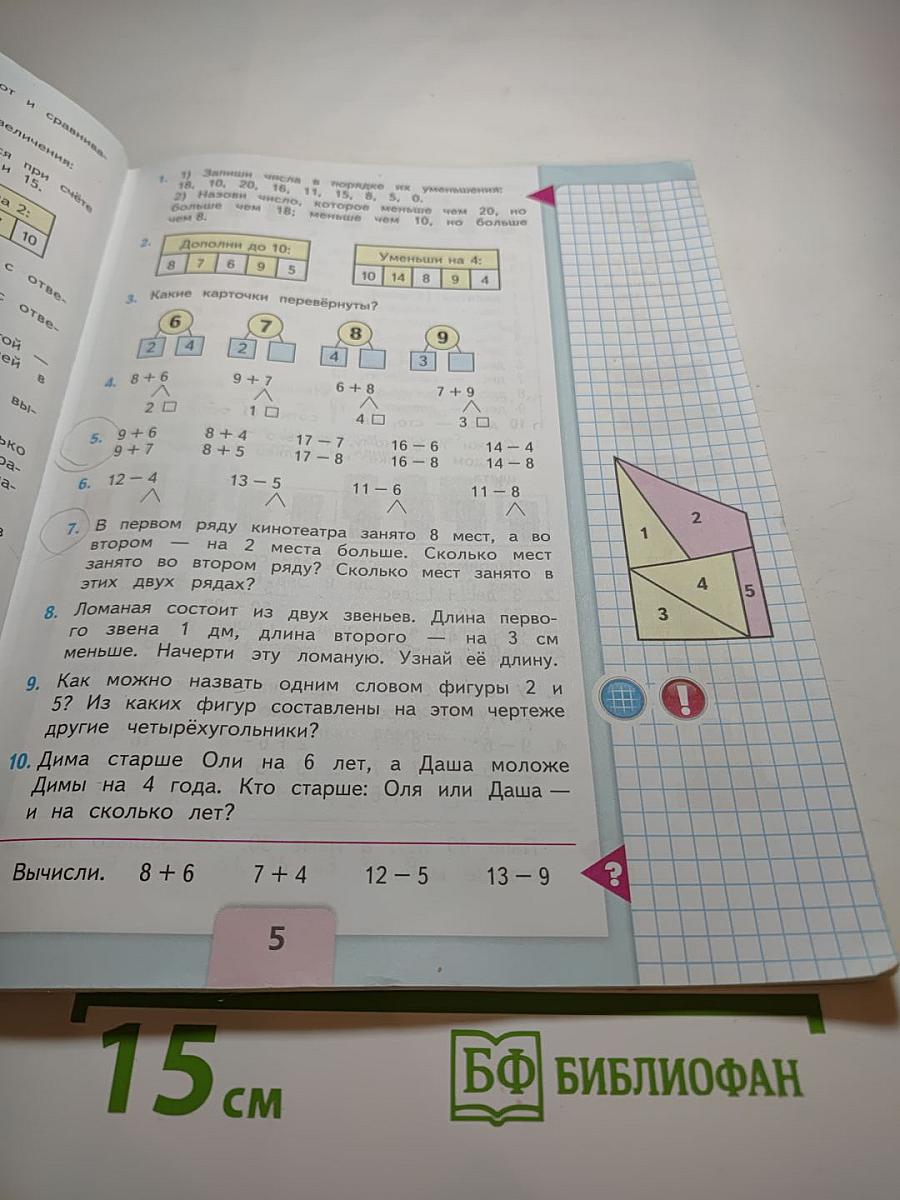 от и сравнива-
величения:
ся при счёте
и 15.
а 2:
10
с отве-
с отве-
той —
ей в
вы-
1. 1) Запиши числа в порядке их уменьшения:
18, 10, 20, 16, 11, 15, 8, 5, 0.
2) Назови число, которое меньше чем 20, но
больше чем 18; меньше чем 10, но больше
чем 8.
2. Дополни до 10: Уменьши на 4:
8 7 6 9 5 10 14 8 9 4
3. Какие карточки перевёрнуты?
6 7 8 9
2 4 2 4 3
4. 8 + 6 9 + 7 6 + 8 7 + 9
2 □ 1 □ 4 □ 3 □
5. 9 + 6 8 + 4 17 − 7 16 − 6 14 − 4
9 + 7 8 + 5 17 − 8 16 − 8 14 − 8
6. 12 − 4 13 − 5 11 − 6 11 − 8
7. В первом ряду кинотеатра занято 8 мест, а во
втором — на 2 места больше. Сколько мест
занято во втором ряду? Сколько мест занято в
этих двух рядах?
8. Ломаная состоит из двух звеньев. Длина перво-
го звена 1 дм, длина второго — на 3 см
меньше. Начерти эту ломаную. Узнай её длину.
9. Как можно назвать одним словом фигуры 2 и
5? Из каких фигур составлены на этом чертеже
другие четырёхугольники?
10. Дима старше Оли на 6 лет, а Даша моложе
Димы на 4 года. Кто старше: Оля или Даша —
и на сколько лет?
Вычисли. 8 + 6 7 + 4 12 − 5 13 − 9
?
5
1
2
3
4
5
!
15 см
БФ БИБЛИОФАН